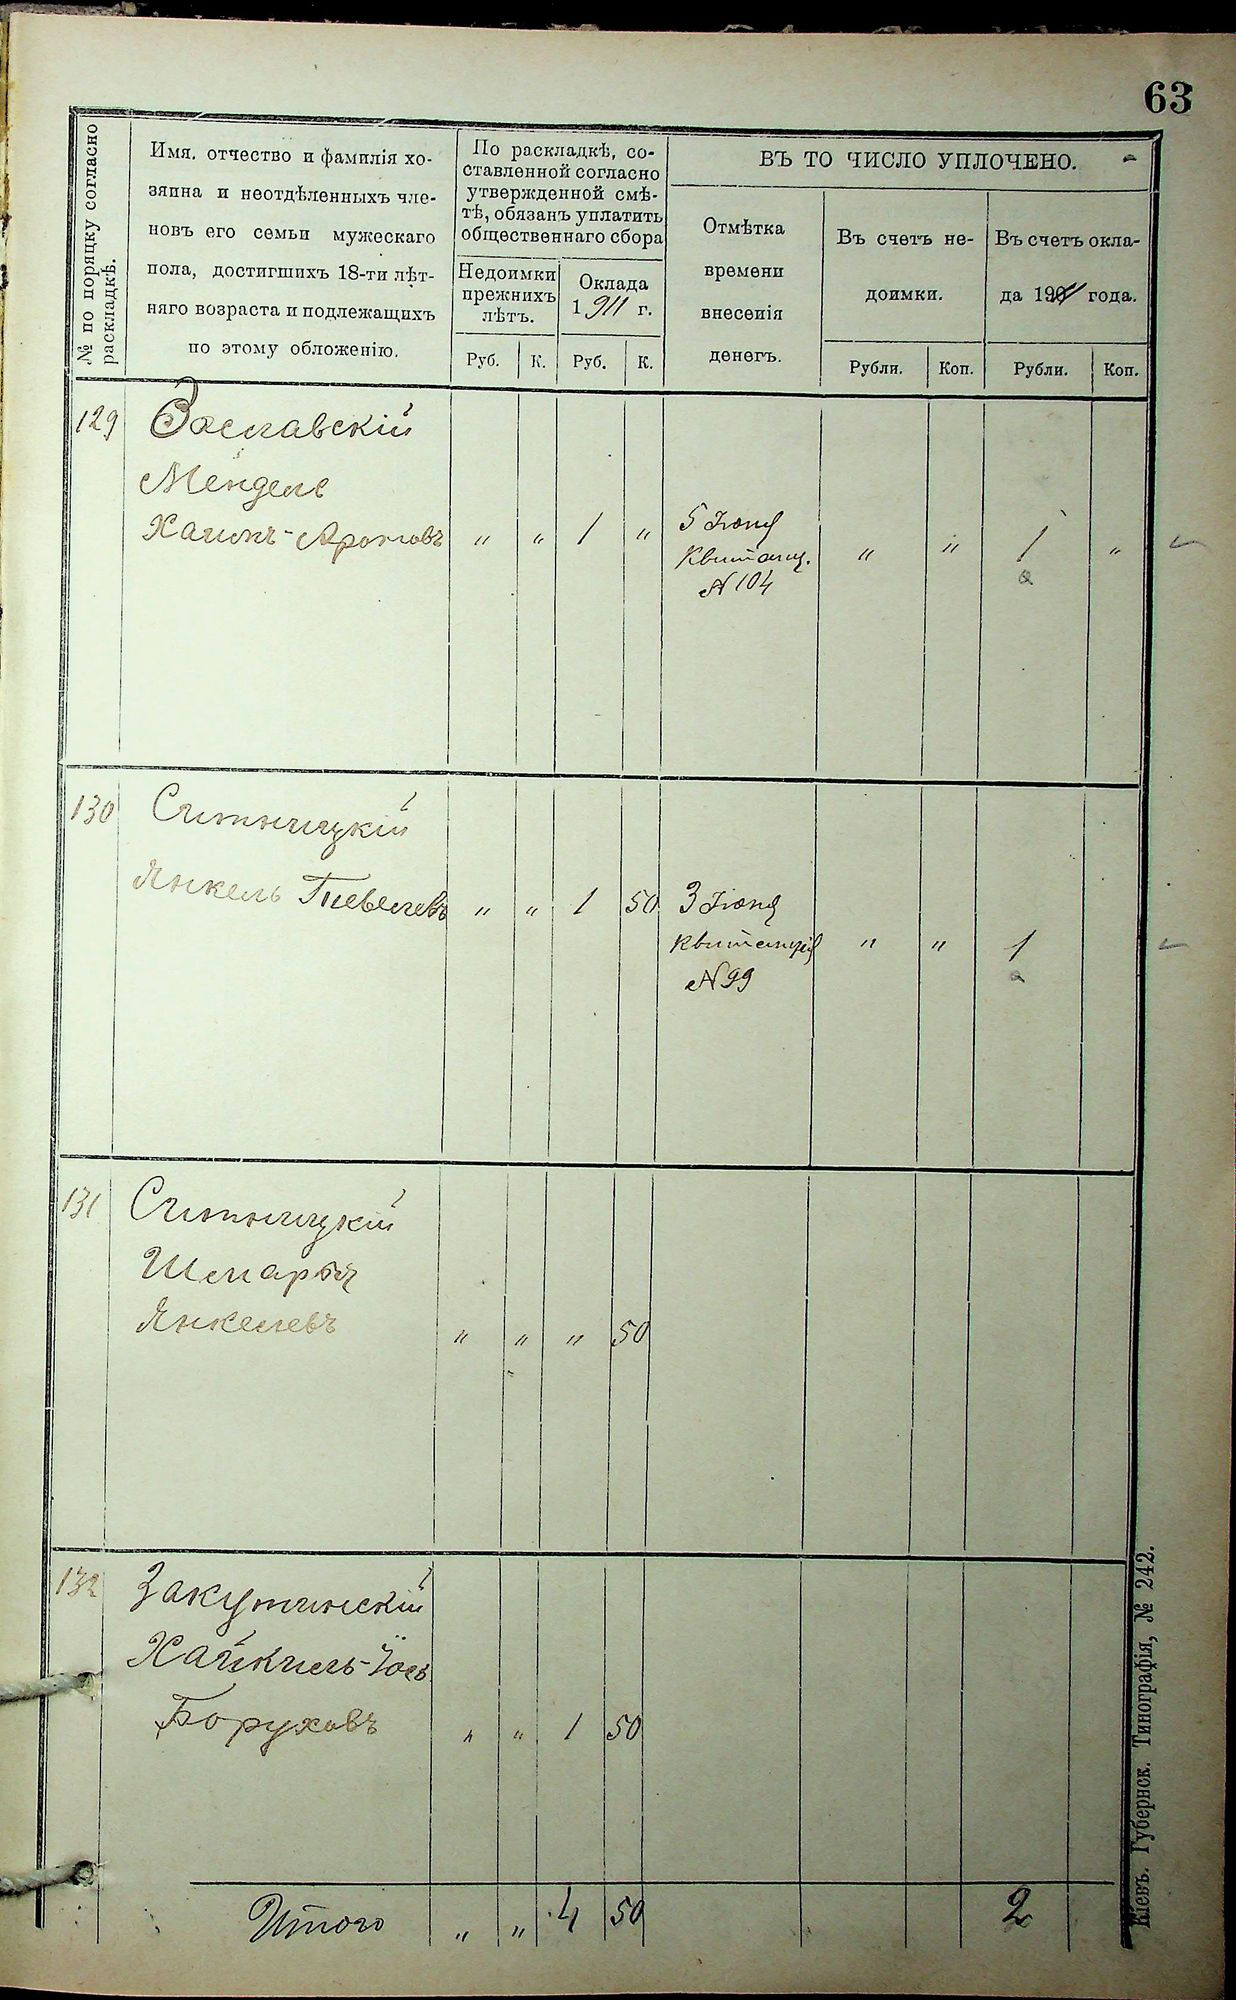 63
№ по поряцку согласно
раскладкѣ.
Имя, отчество и фамилія хо-
зяина и неотдѣленныхъ чле-
новъ его семьи мужескаго
пола, достигшихъ 18-ти лѣт-
няго возраста и подлежащихъ
по этому обложенію.
По раскладкѣ, со-
ставленной согласно
утвержденной смѣ-
тѣ, обязанъ уплатить
общественнаго сбора
Недоимки
прежнихъ
лѣтъ.
Оклада
1911 г.
Руб. К. Руб. К.
ВЪ ТО ЧИСЛО УПЛОЧЕНО.
Отмѣтка
времени
внесенія
денегъ.
Въ счетъ не-
доимки.
Въ счетъ окла-
да 1911 года.
Рубли. Коп. Рубли. Коп.
129 Заславскій
Мендель
Хаимъ-Ароновъ " " 1 " 5 Іюня " " 1 "
Квитанц.
№ 104
130 Ситницкій
Янкель Тевелевъ " " 1 50 3 Іюня
Квитанція " " 1
№ 99
131 Ситницкій
Шмарья
Янкелевъ " " " 50
132 Закутинскій
Хайкель-Іось
Боруховъ " " 1 50
Итого " " 4 50 2
Кіевъ. Губернск. Типографія, № 242.